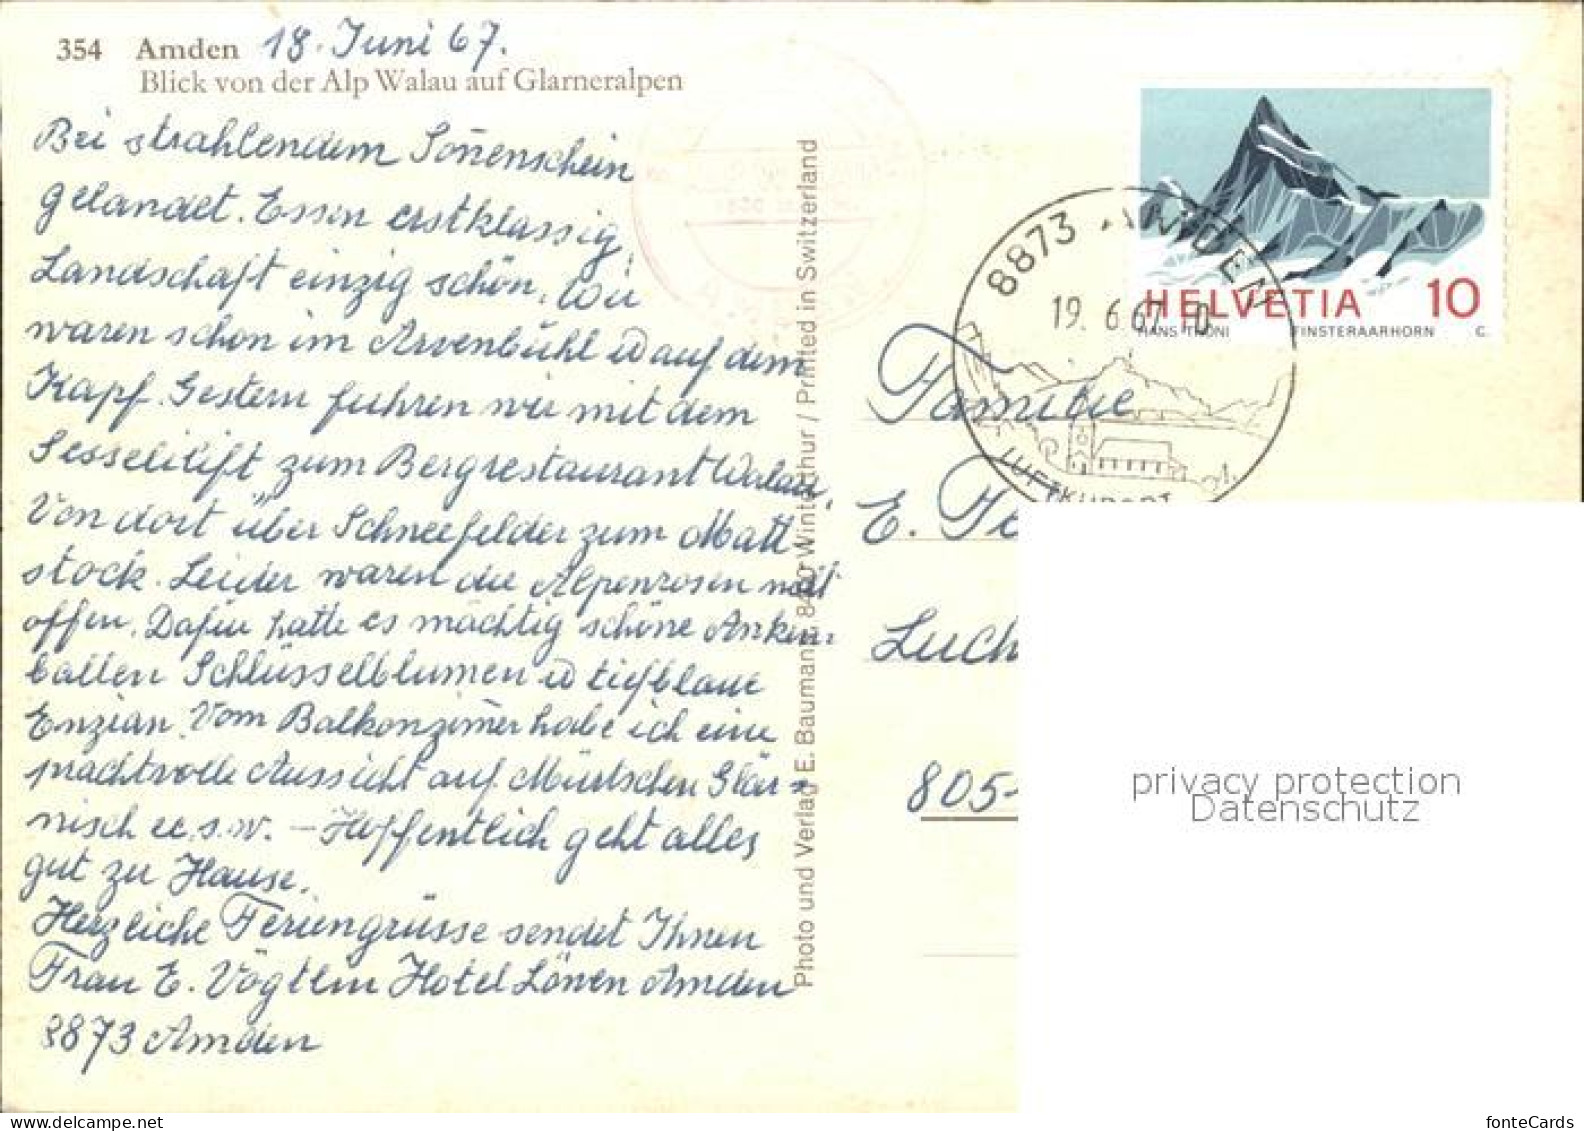 354 Amden 18. Juni 67.
Blick von der Alp Walau auf Glarneralpen
Bei strahlendem Soñenschein
gelandet. Essen erstklassig,
Landschaft einzig schön. Wir
waren schon im Arvenbühl u auf dem
Kapf. Gestern fuhren wir mit dem
Sessellift zum Bergrestaurant Walau,
Von dort über Schneefelder zum Matt
stock. Leider waren die Alpenrosen nicht
offen. Dafür hatte es mächtig schöne Anken-
ballen Schlüsselblumen u tiefblaue
Enzian. Vom Balkonzim̃er habe ich eine
prachtvolle Aussicht auf Mürtschen Glär=
nisch u.s.w. – Hoffentlich geht alles
gut zu Hause.
Herzliche Feriengrüsse sendet Ihnen
Frau E. Vögtlin Hotel Löwen Amden
8873 Amden
Photo und Verlag E. Baumann, 8400 Winterthur / Printed in Switzerland
HELVETIA 10
HANS THÖNI FINSTERAARHORN C.
8873 AMDEN
19. 6. 67
LUFTKURORT
Familie
E.
Luch
805
privacy protection
Datenschutz
fonteCards